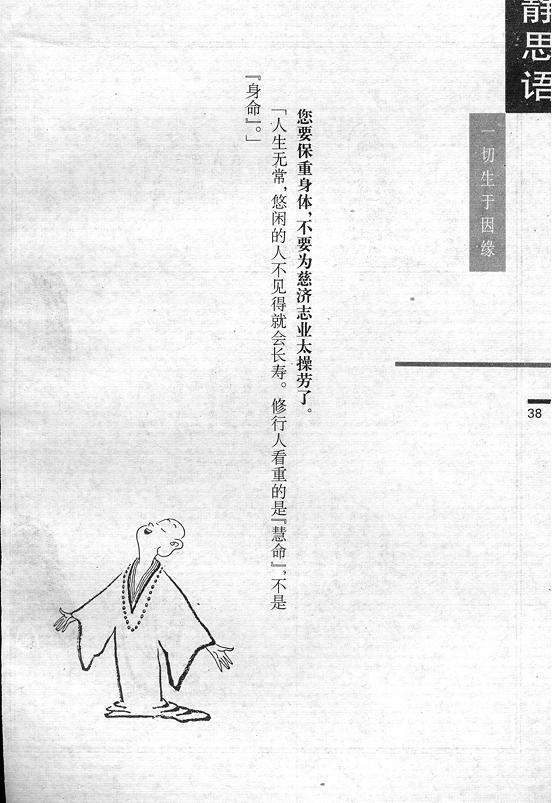 静思语
一切生于因缘
38
您要保重身体，不要为慈济志业太操劳了。
「人生无常，悠闲的人不见得就会长寿。修行人看重的是『慧命』，不是
『身命』。」